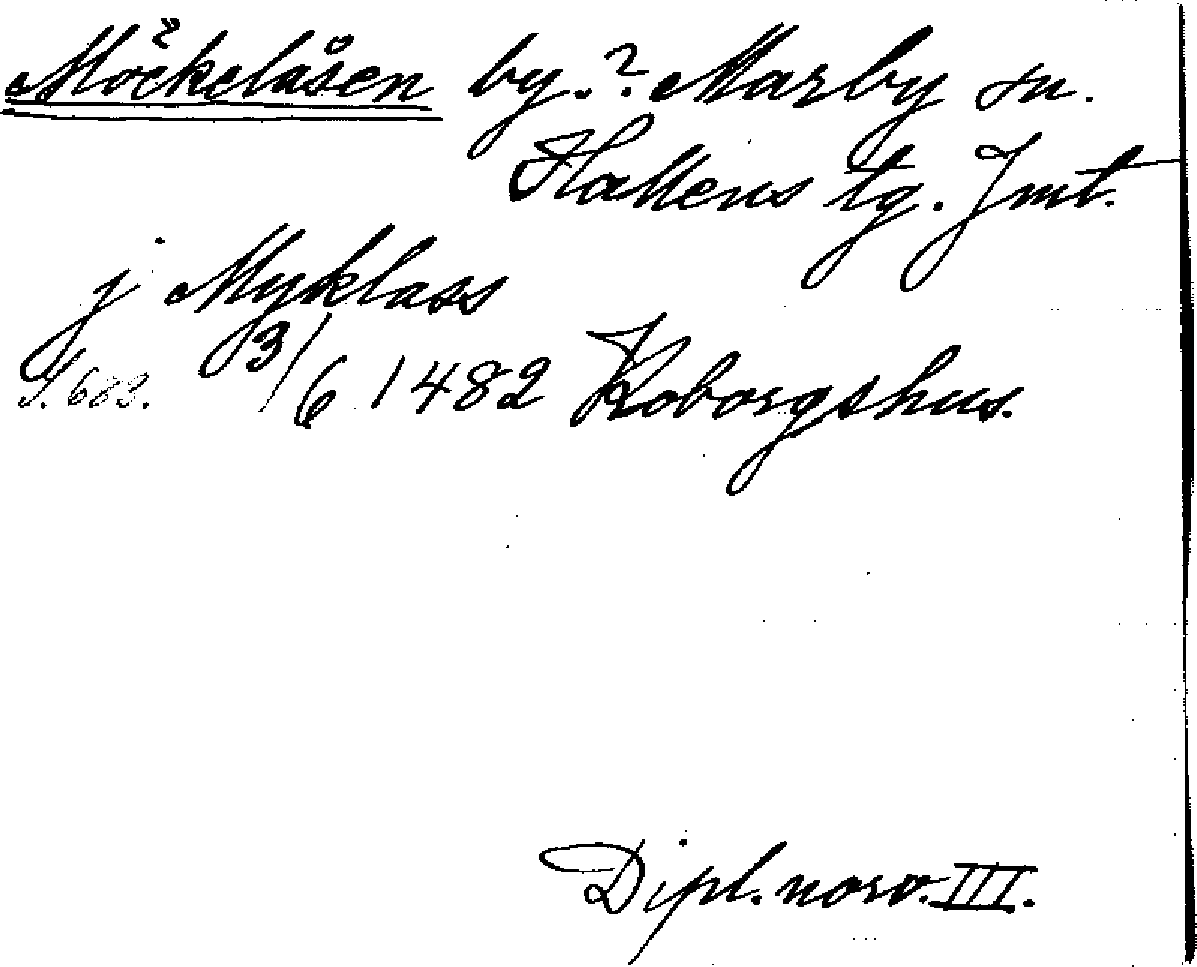 Möckelåsen by.? Marby sn.
Hallens tg. Jmt.
j Myklass
S. 683. 3/6 1482 Koborgshus.
Dipl. norv. III.